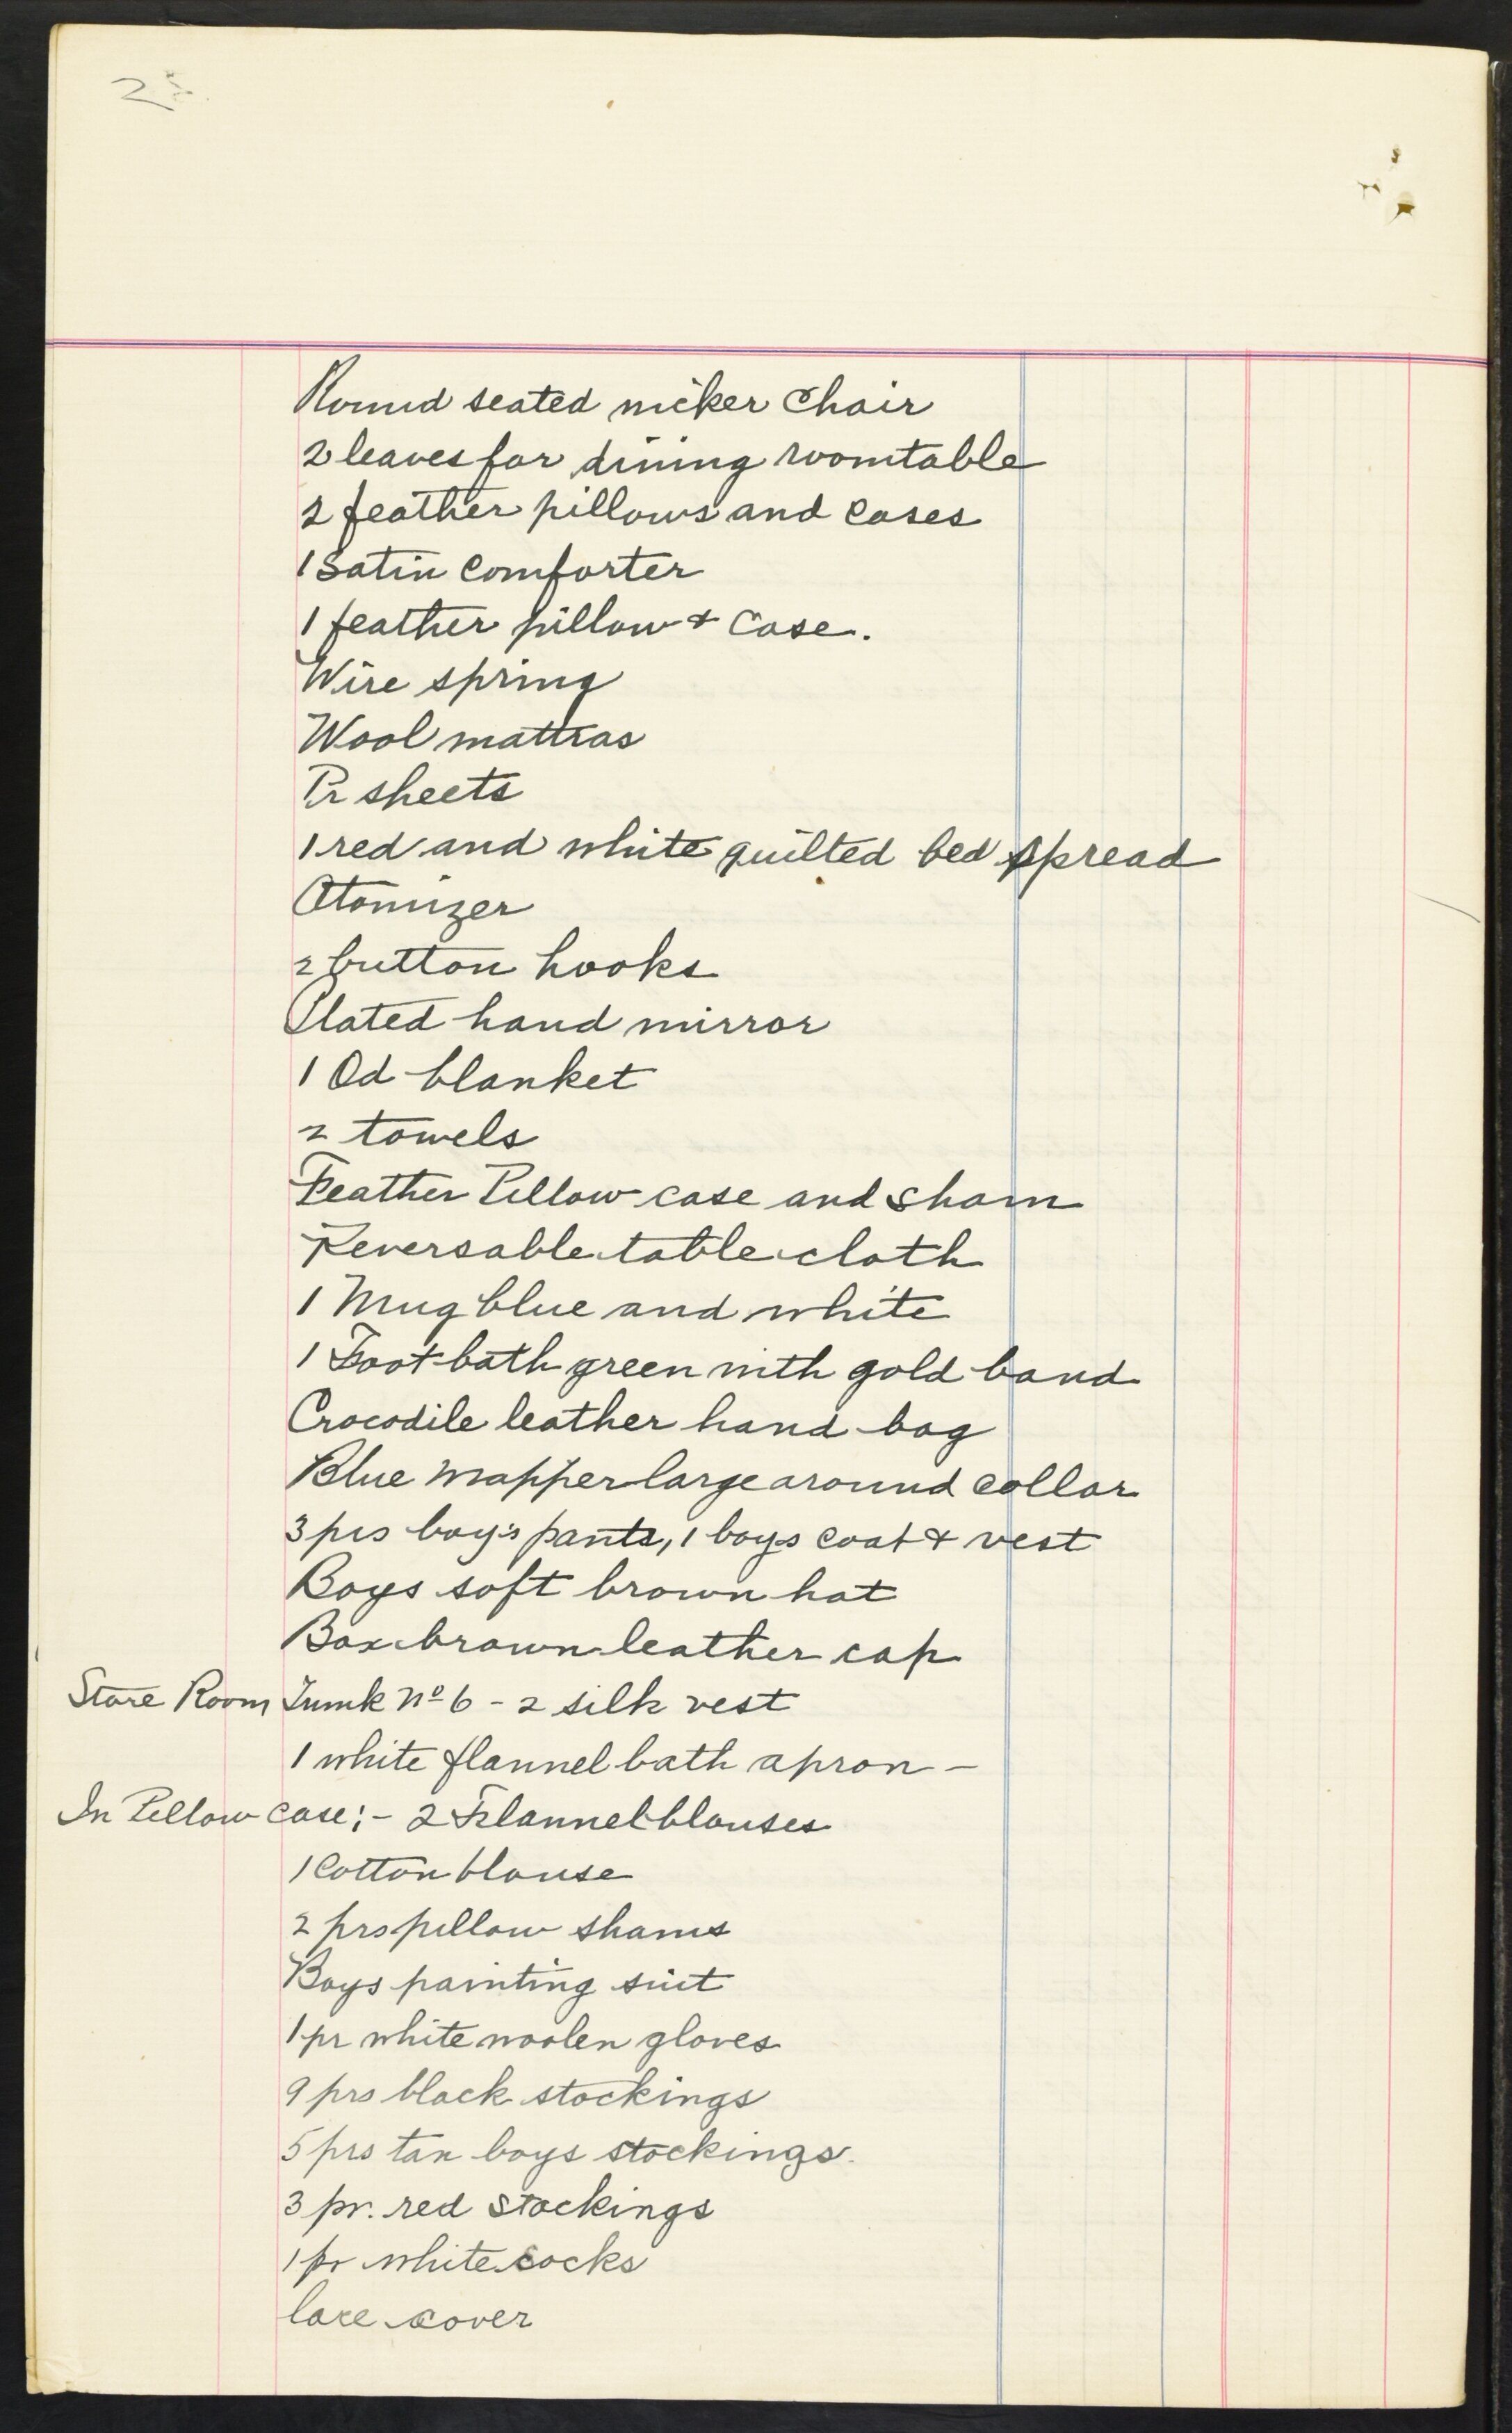 Round seated wicker Chair
2 leaves for dining roomtable
2 feather pillows and cases
1 Satin Comforter
1 feather pillow & Case.
Wire spring
Wool mattras
Pr sheets
1 red and white quilted bed spread
Otomizer
2 button hooks
Plated hand mirror
1 Od blanket
2 towels
Feather Pillow case and sham
Reversable table cloth
1 Mug blue and white
1 Foot bath green with gold band
Crocodile leather hand bag
Blue wrapper large around collar
3 prs boy's pants, 1 boys coat & vest
Boys soft brown hat
Box brown leather cap
Store Room Trunk No 6 - 2 silk vest
1 white flannel bath apron -
In Pillow case:- 2 Flannel blouses
1 Cotton blouse
2 prs pillow shams
Boys painting suit
1 pr white woolen gloves
9 prs black stockings
5 prs tan boys stockings.
3 pr. red stockings
1 pr white socks
lace cover